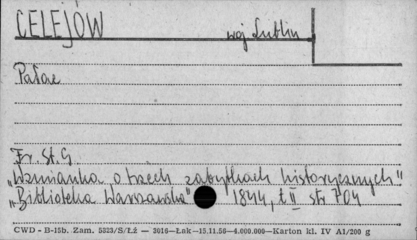 CELEJÓW
woj Lublin
Pałac
Fr. St. G
„Wzmianka o trzech zabytkach historycznych"
„Biblioteka Warszawska" 1844, t II str 704
CWD - B-15b. Zam. 5323/S/Łż — 2016—Łak—15.11.50—4.000.000—Karton kl. IV A1/200 g